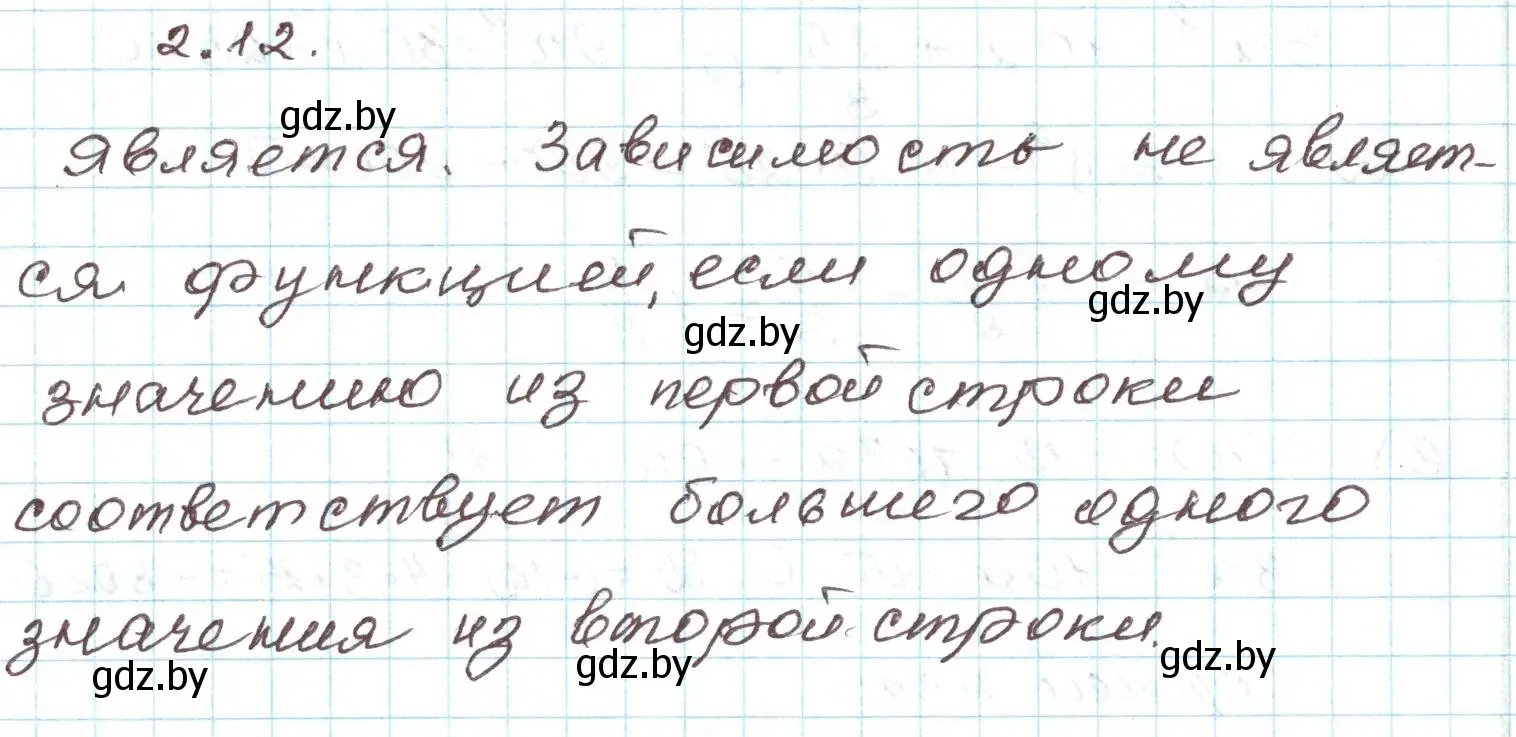 2.12.
gdz.by
является. Зависимость не являет-
ся функцией, если одному
gdz.by
gdz.by
значению из первой строки
соответствует большего одного
значения из второй строки.
gdz.by
gdz.by
gdz.by